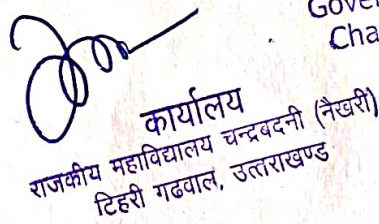 Gove
Cha
कार्यालय
राजकीय महाविद्यालय चन्द्रबदनी (नैखरी)
टिहरी गढवाल, उत्तराखण्ड